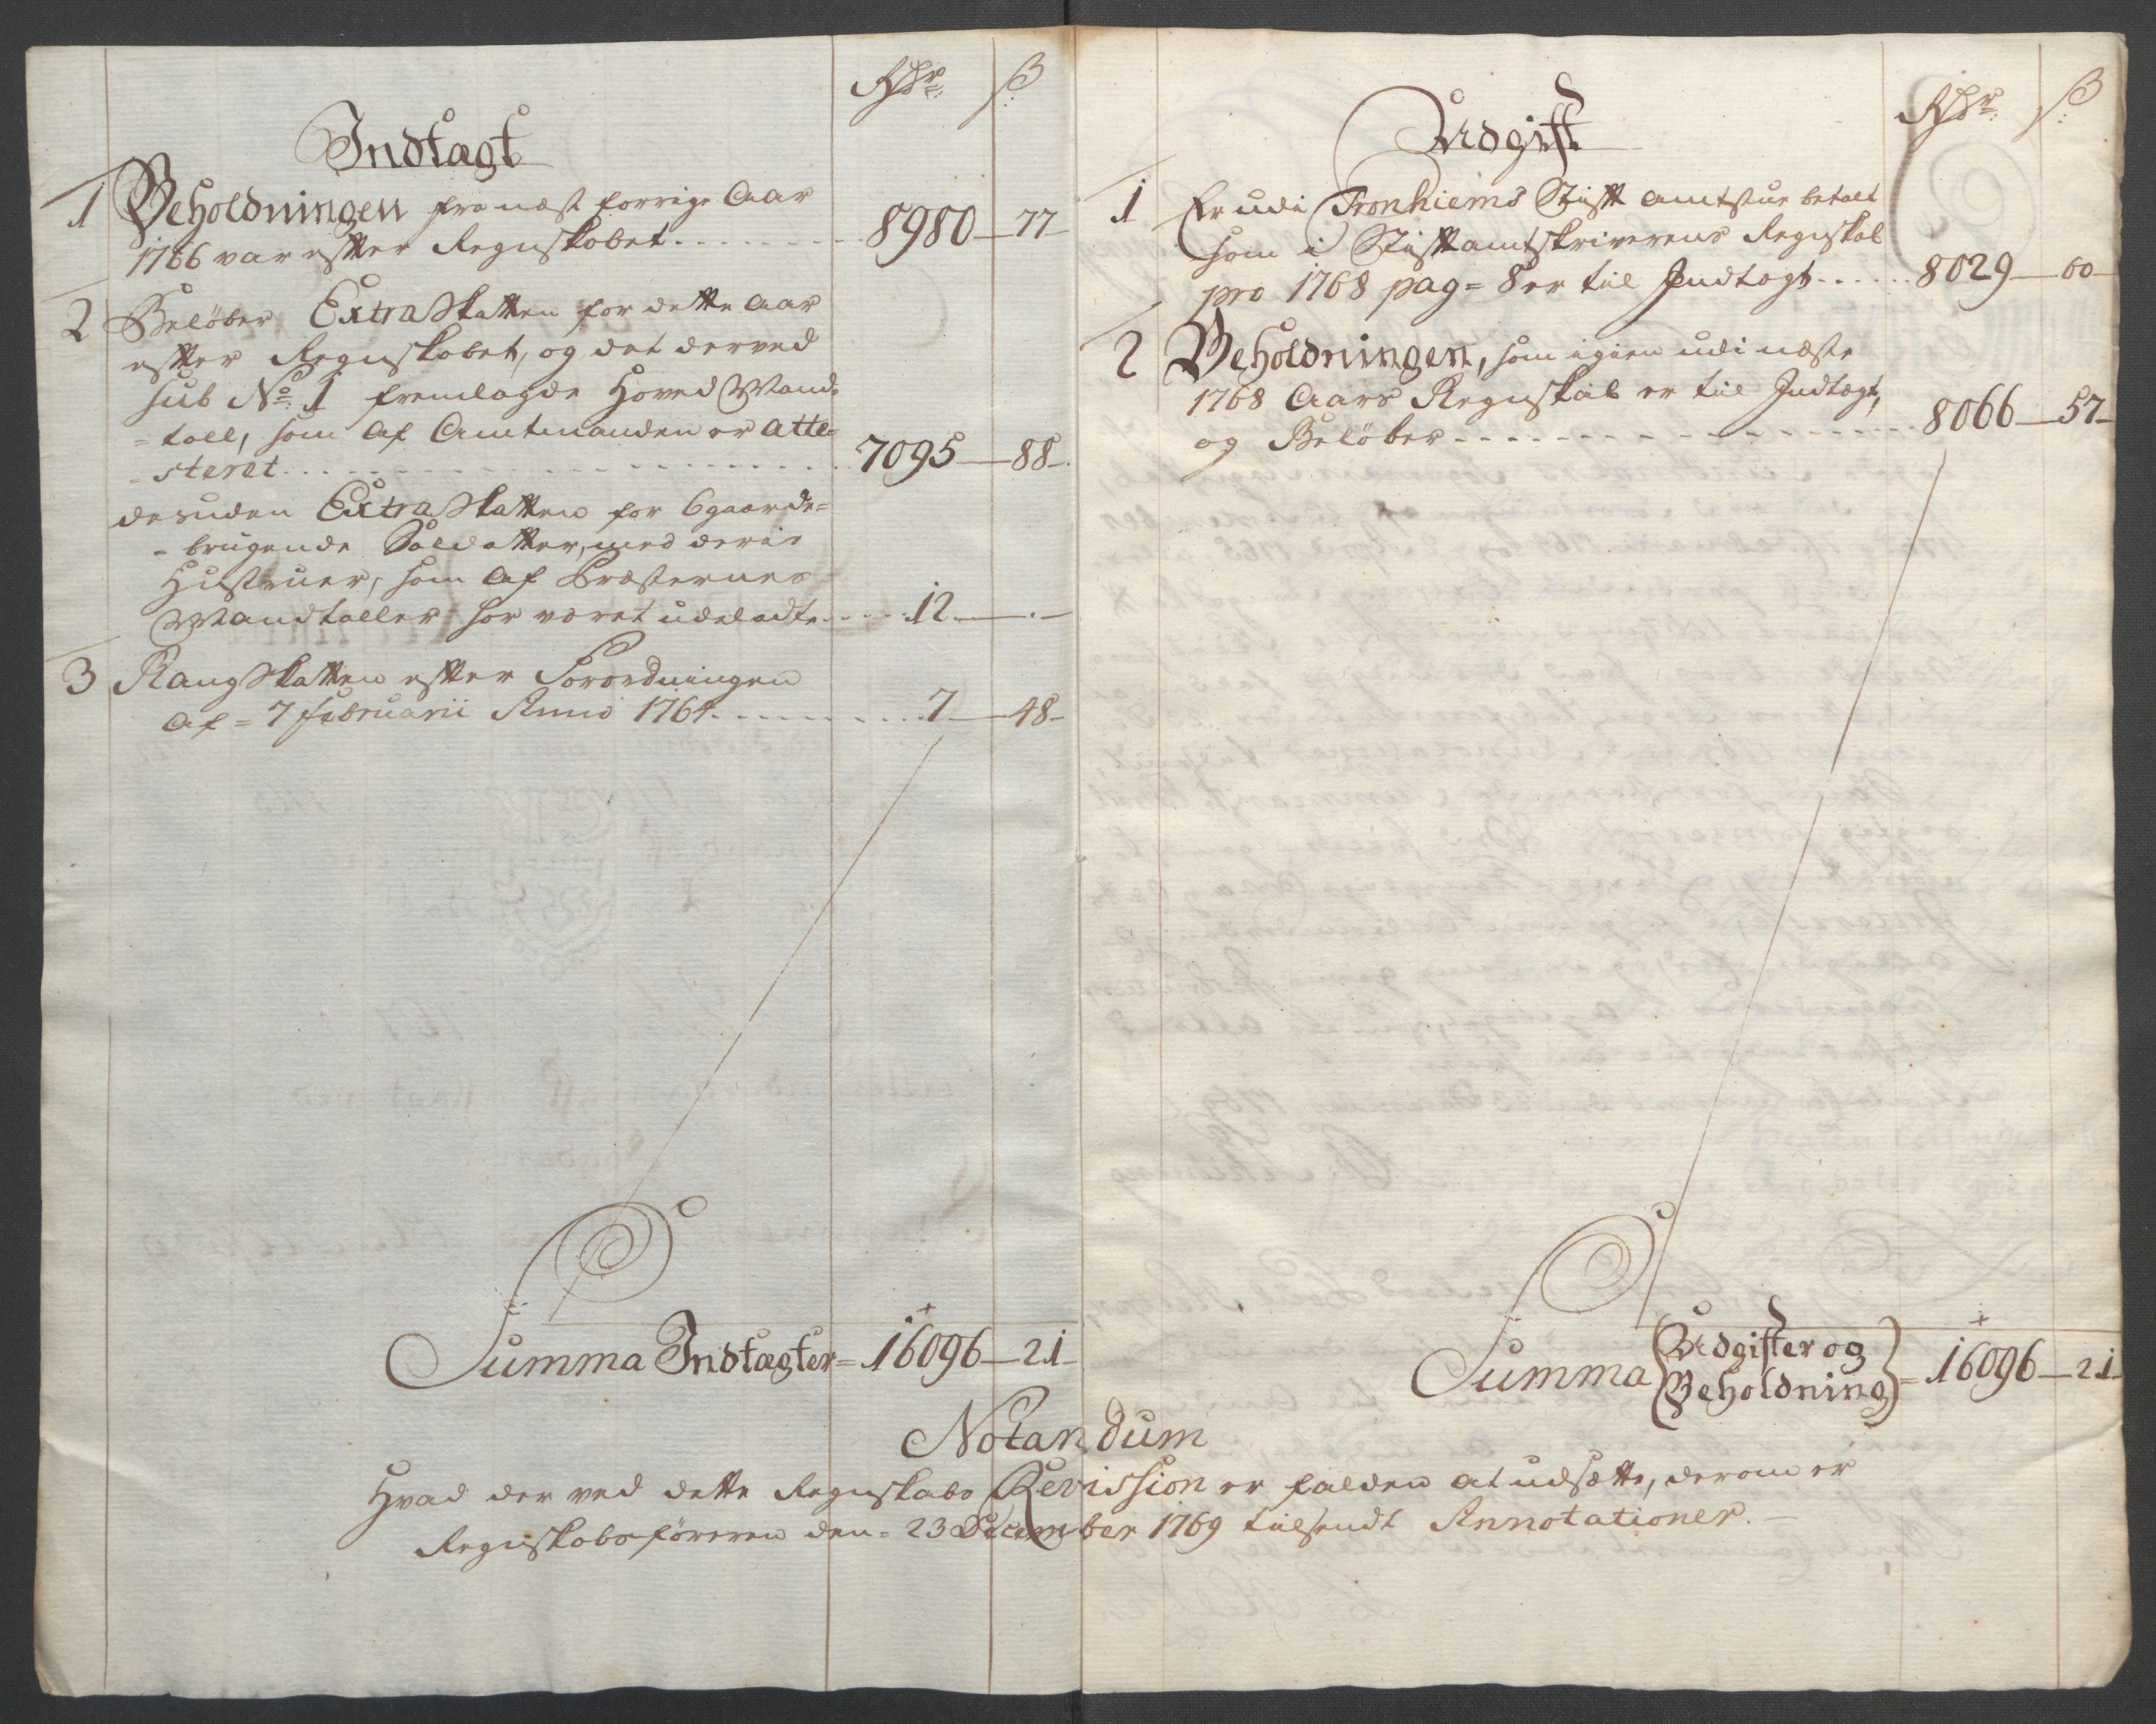 Rdr ß
Indtægt
1 Beholdningen fra næst forrige Aar
1766 var efter Regnskabet 8980 77
2 Beløber Extra Skatten for dette Aar
efter Regnskabet, og det derved
sub No 1 fremlagde Hoved Mand-
-tall, som af Amtmanden er Atte-
-steret 7095 88
desuden Extra Skatten for 6 gaarde-
-brugende Soldatter, med deris
Hustruer, som af Præsternes
Mandtaller har været udeladte 12
3 Rang Skatten efter Forordningen
af 7 Februarii Anno 1764 7 48
Summa Indtægter 16096 21
Rdr ß
Udgift
1 Er udi Tronhiems Stift Amtstue betalt
som i Stiftamtskriverens Regnskab
pro 1768 pag 8 er til Indtægt 8029 60
2 Beholdningen, som igien udi næste
1768 Aars Regnskab er til Indtægt,
og Beløber 8066 57
Summa Udgifter og Beholdning 16096 21
Notandum
Hvad der ved dette Regnskabs Revission er falden at udsætte, derom er
Regnskabsføreren den 23 December 1769 tilsendt Annotationer.